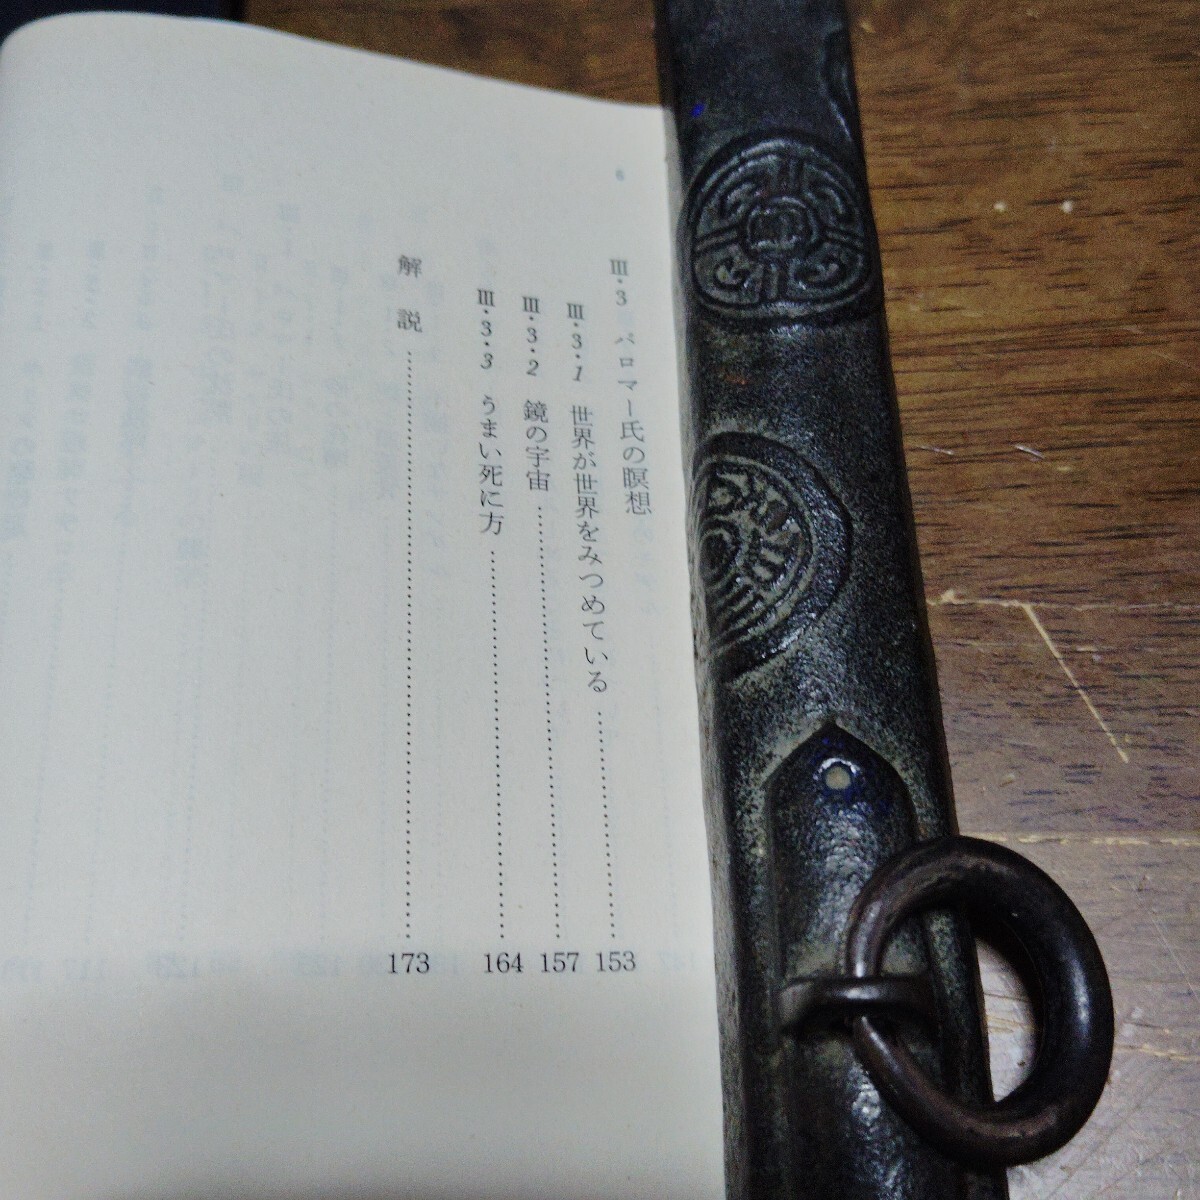 6
III・3 パロマー氏の瞑想
III・3・1 世界が世界をみつめている ………… 153
III・3・2 鏡の宇宙 ………… 157
III・3・3 うまい死に方 ………… 164
解説 ………… 173